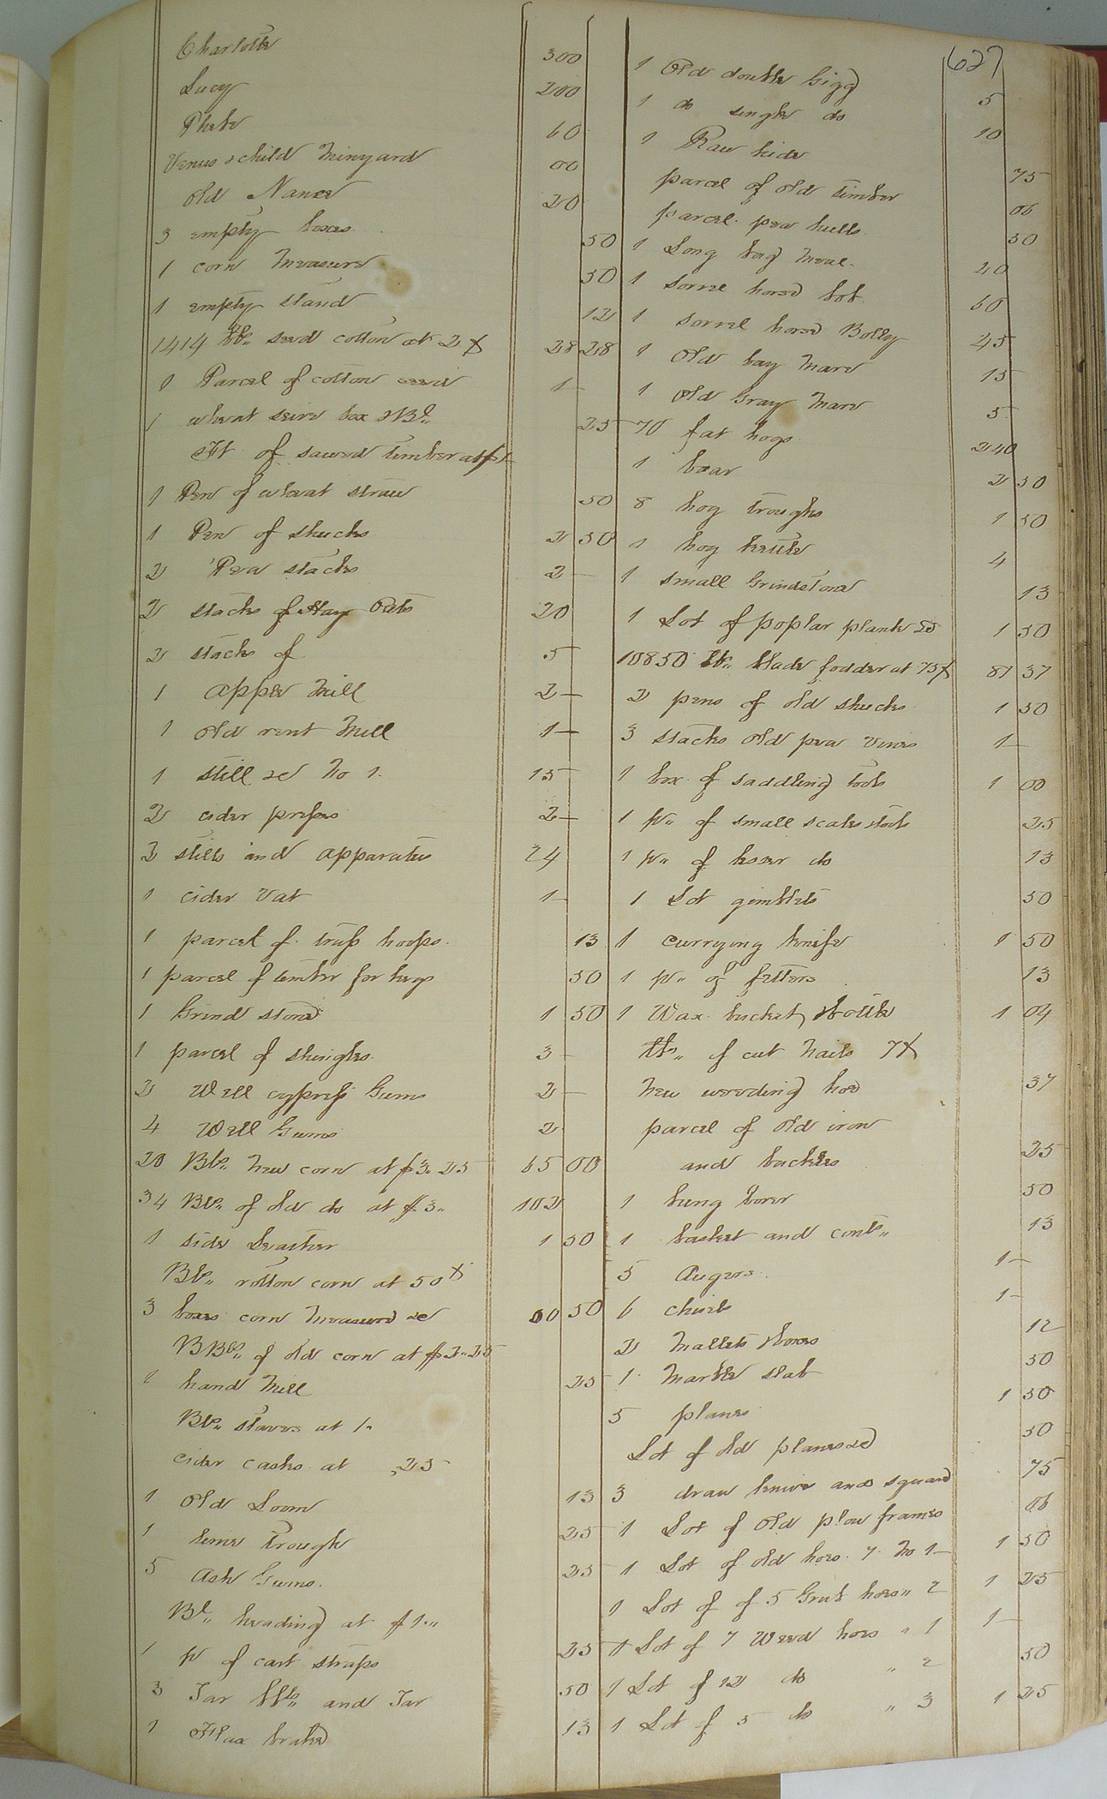 627
Charlotte 300
Lucy 200
Phebe 60
Venus & child Minyard 00
Old Nance 20
3 empty boxes 50
1 corn Measure 50
1 empty stand 12
1414 lbs seed cotton at 2 28 28
1 Parcel of cotton seed 1—
1 wheat seive box & Bl. 25
of sawed timber at $1—
1 Pen of wheat straw 50
1 Pen of shucks 2 50
2 Pea stacks 2—
2 stacks of Hay Oats 20
2 stacks of 5
1 apple Mill 2—
1 old rent Mill 1—
1 still &c No 1. 15
2 cider presses 2—
2 stills and apparatus 24
1 cider Vat 1—
1 parcel of truss hoops. 13
1 parcel of timber for 50
1 Grind stone 1 50
1 parcel of shingles. 3—
2 Well cypress Gums 2—
4 Well Gums 2
20 Bls. New corn at $3.25 65 00
34 Bls. of old do at $3.. 102
1 side Leather 1 50
Bls. rotton corn at 50
3 boxes corn Measure &c 00 50
BBls. of old corn at $2.25
1 hand Mill 25
Bls. staves at 1.
cider casks at .25
1 Old Loom 13
1 Lime Trough 25
5 Ash Gums. 25
Bl. heading at $1..
1 pr of cart straps 25
3 Tar bbls. and Tar 50
1 Flax brake 13
1 Old double Gigg 5
1 do single do 10
1 Raw hide 75
parcel of old timber 06
parcel pea hulls 50
1 Long bay Mare. 20
1 sorrel horse bob 60
1 sorrel horse Bolley 45
1 Old bay Mare 15
1 Old Gray Mare 5
70 fat hogs 240
1 boar 2 50
8 hog troughs 1 50
1 hog kettle 4
1 small Grindstone 13
1 Lot of poplar plank &c 1 50
10850 lbs. blade fodder at 75 81 37
2 pens of old shucks 1 50
3 stacks old pea vines 1—
1 box of saddling tools 1 00
1 pr. of small scales 25
1 pr. of do 13
1 Lot gimblets 50
1 currying knife 1 50
1 pr. of fetters 13
1 Wax bucket, & bottle 1 04
lbs. of cut Nails 7
New weeding hoe 37
parcel of old iron
and buckles 25
1 bung borer 50
1 basket and conts.. 13
5 Augers. 1—
6 chisels 1—
2 Mallets & boxes 12
1 Marble slab 50
5 planes 1 50
Lot of old planes &c 50
3 draw knive and square 75
1 Lot of old plow frames 06
1 Lot of old hoes. 7. No 1— 1 50
1 Lot of of 5 Grub hoes " 2 1 25
1 Lot of 7 Weed hoes " 1 1—
1 Lot of 12 do " 2 50
1 Lot of 5 do " 3 1 25